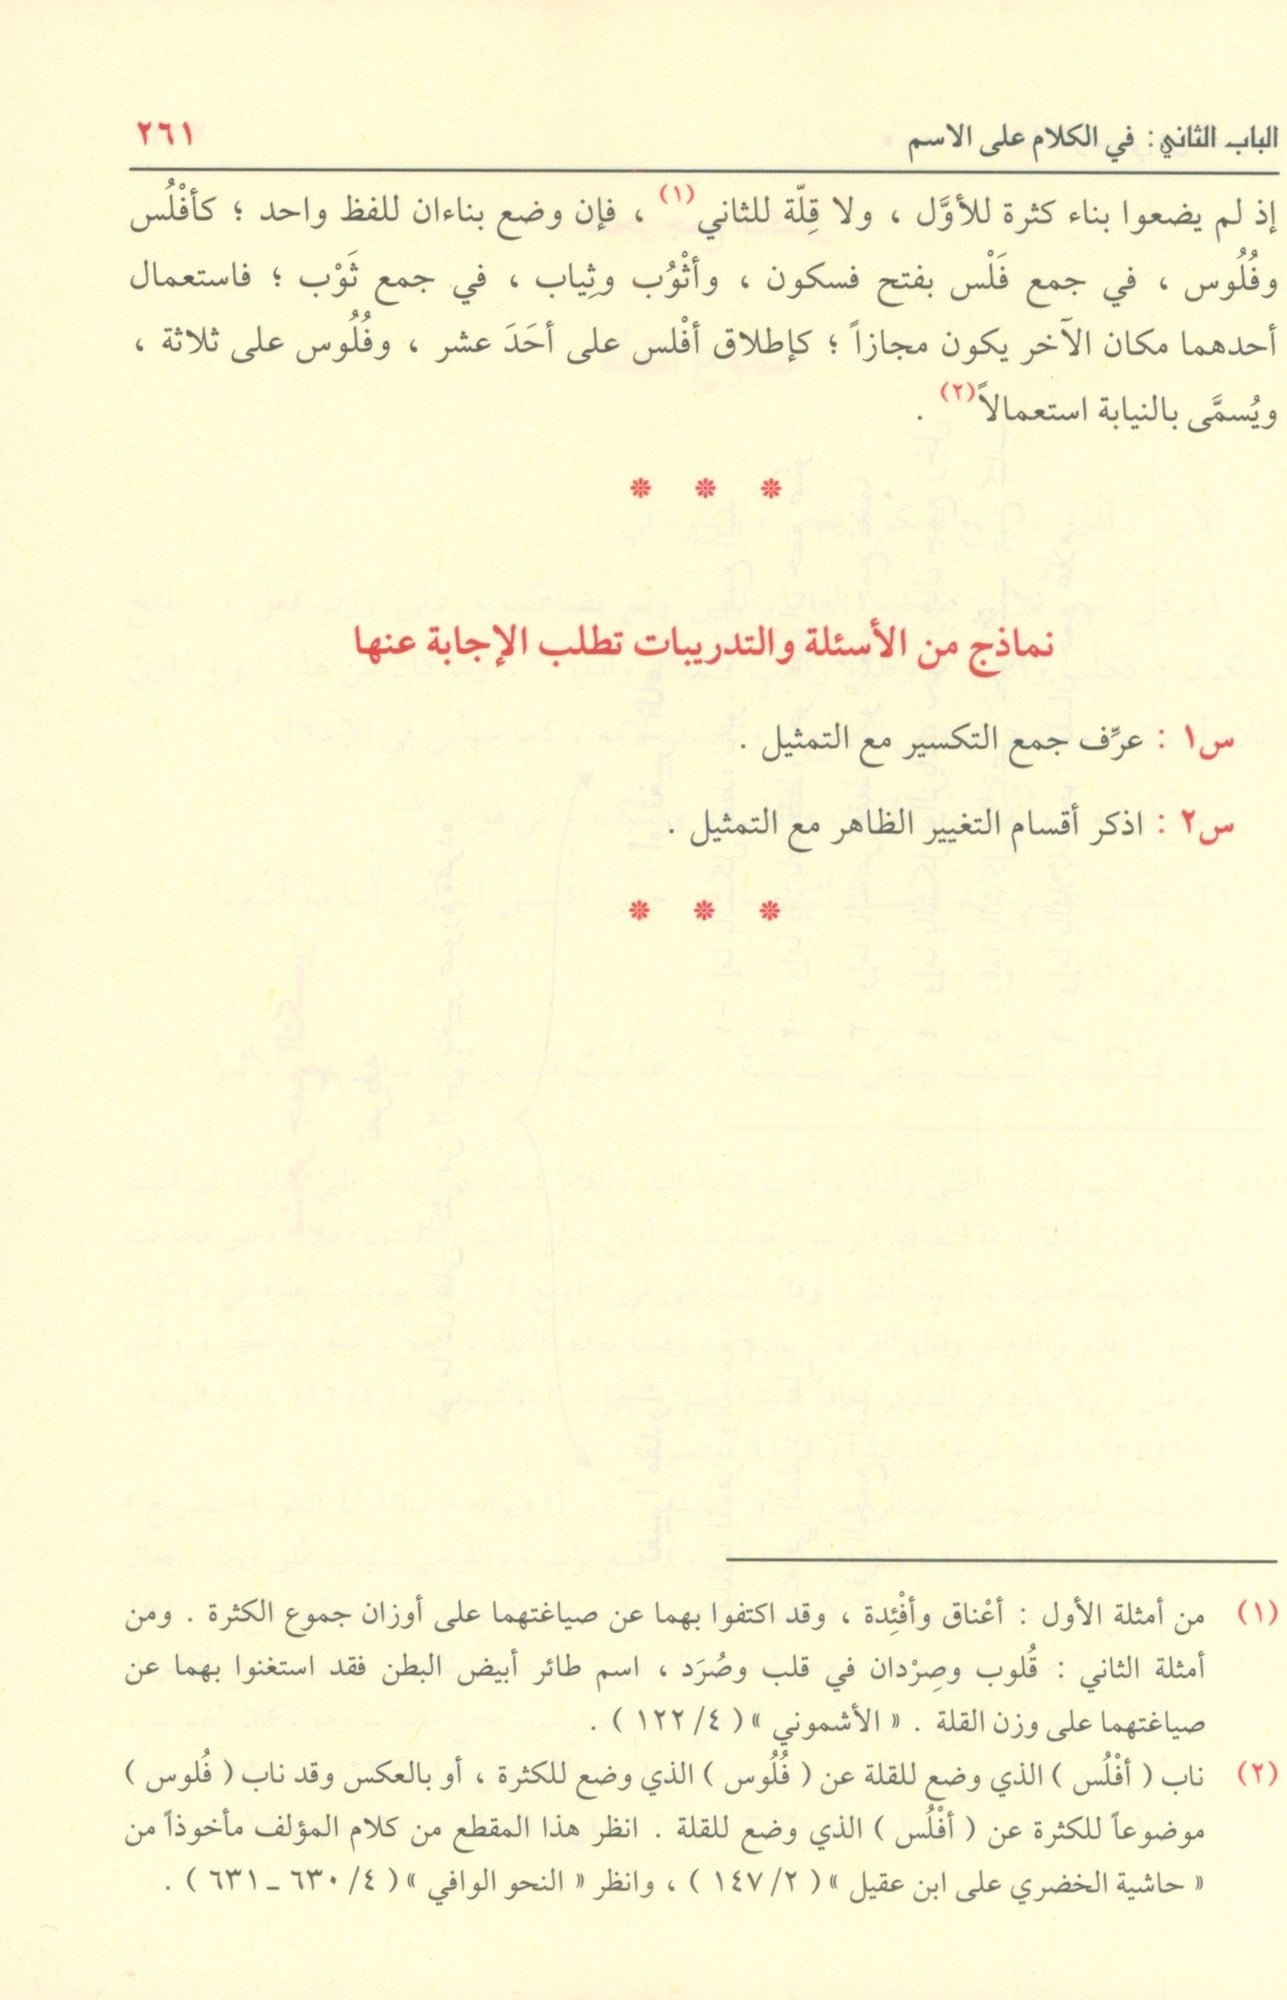 الباب الثاني: في الكلام على الاسم ٢٦١
إذ لم يضعوا بناء كثرة للأوَّل ، ولا قِلّة للثاني(١) ، فإن وضع بناءان للفظ واحد ؛ كأفْلُس
وفُلُوس ، في جمع فَلْس بفتح فسكون ، وأثْوُب وثِياب ، في جمع ثَوْب ؛ فاستعمال
أحدهما مكان الآخر يكون مجازاً ؛ كإطلاق أفْلس على أحَدَ عشر ، وفُلُوس على ثلاثة ،
ويُسمَّى بالنيابة استعمالاً(٢) .
* * *
نماذج من الأسئلة والتدريبات تطلب الإجابة عنها
س١ : عرِّف جمع التكسير مع التمثيل .
س٢ : اذكر أقسام التغيير الظاهر مع التمثيل .
* * *
(١) من أمثلة الأول : أعْناق وأفْئِدة ، وقد اكتفوا بهما عن صياغتهما على أوزان جموع الكثرة . ومن
أمثلة الثاني : قُلوب وصِرْدان في قلب وصُرَد ، اسم طائر أبيض البطن فقد استغنوا بهما عن
صياغتهما على وزن القلة . « الأشموني » ( ٤/ ١٢٢ ) .
(٢) ناب ( أفْلُس ) الذي وضع للقلة عن ( فُلُوس ) الذي وضع للكثرة ، أو بالعكس وقد ناب ( فُلوس )
موضوعاً للكثرة عن ( أفْلُس ) الذي وضع للقلة . انظر هذا المقطع من كلام المؤلف مأخوذاً من
« حاشية الخضري على ابن عقيل » ( ٢/ ١٤٧ ) ، وانظر « النحو الوافي » ( ٤/ ٦٣٠ ـ ٦٣١ ) .